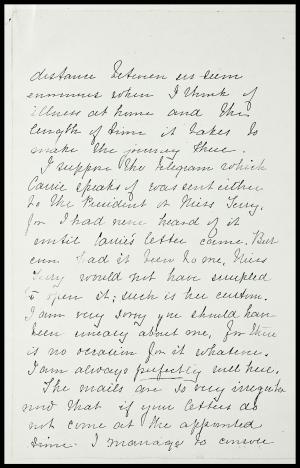 distance between us seem
enormous when I think of
illness at home and the
length of time it takes to
make the journey there.
I suppose the telegram which
Carrie speaks of was sent either
to the President or Miss Terry,
for I had never heard of it
until Carrie's letter came. But
even had it been to me, Miss
Terry would not have scrupled
to open it; such is her custom.
I am very sorry you should have
been uneasy about me, for there
is no occasion for it whatever.
I am always perfectly well here.
The mails are so very irregular
now that if your letters do
not come at the appointed
time I manage to